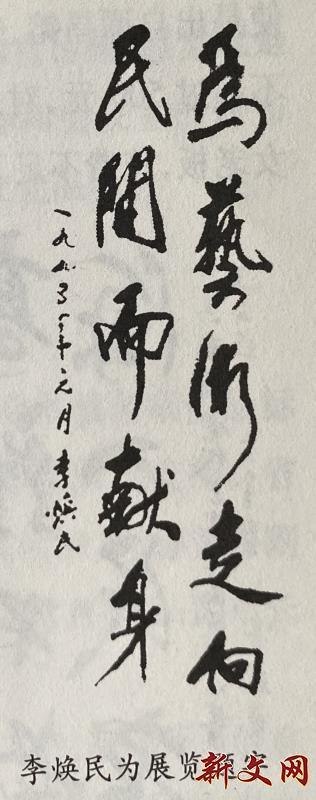 為藝術走向
民間而献身
一九九五年元月 李焕民
李焕民为展览题字
新文网